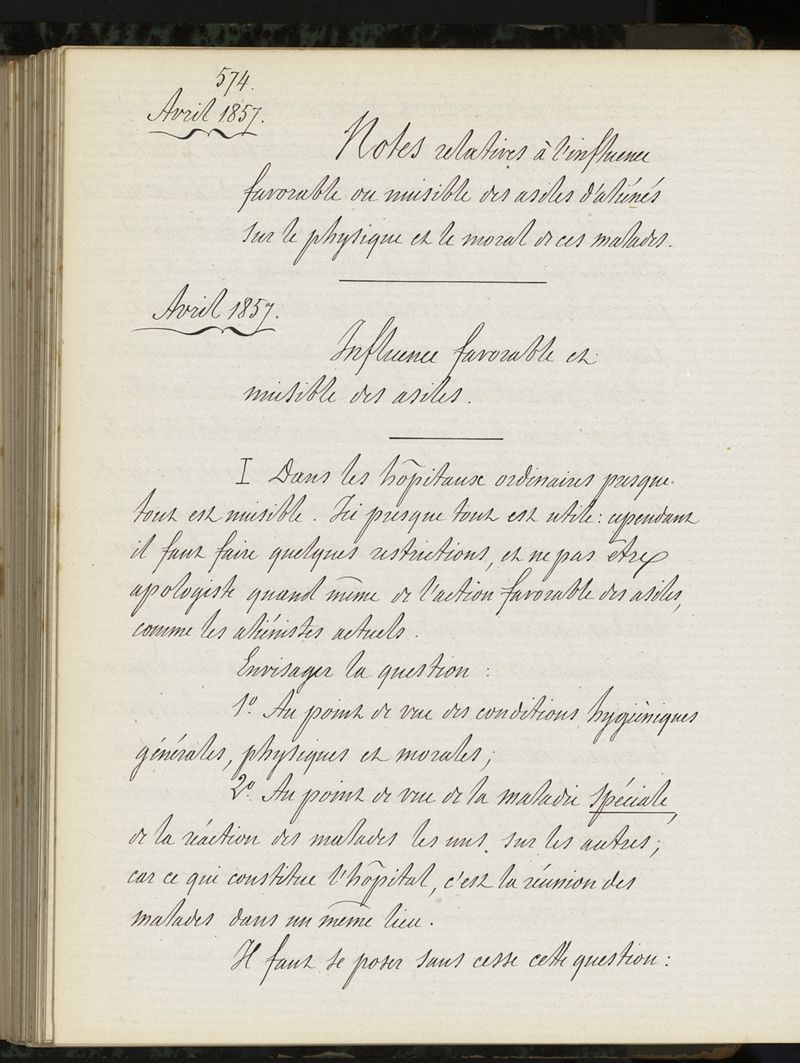 574.
Avril 1857.
Notes relatives à l'influence
favorable ou nuisible des asiles d'aliénés
sur le physique et le moral de ces malades.
Avril 1857.
Influence favorable et
nuisible des asiles.
I Dans les hôpitaux ordinaires presque
tout est nuisible. Ici presque tout est utile: cependant
il faut faire quelques restrictions, et ne pas être
apologiste quand même de l'action favorable des asiles,
comme les aliénistes actuels.
Envisager la question :
1º. Au point de vue des conditions hygiéniques
générales, physiques et morales;
2º. Au point de vue de la maladie spéciale,
de la réaction des malades les uns sur les autres;
car ce qui constitue l'hôpital, c'est la réunion des
malades dans un même lieu.
Il faut se poser sans cesse cette question: